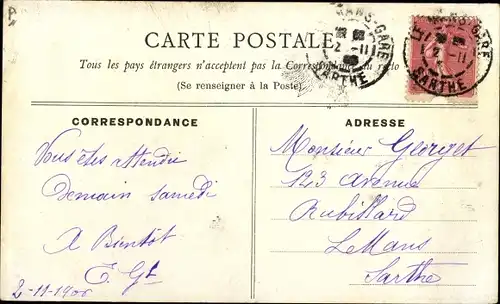 CARTE POSTALE
Tous les pays étrangers n'acceptent pas la Correspondance au recto
(Se renseigner à la Poste).
MANS-GARE
2 -11
SARTHE
MANS-GARE
2 -11
SARTHE
CORRESPONDANCE
Vous êtes attendu
demain samedi
A Bientôt
E. Gt
2-11-1906
ADRESSE
Monsieur Georget
123 Avenue
Rubillard
Le Mans
Sarthe